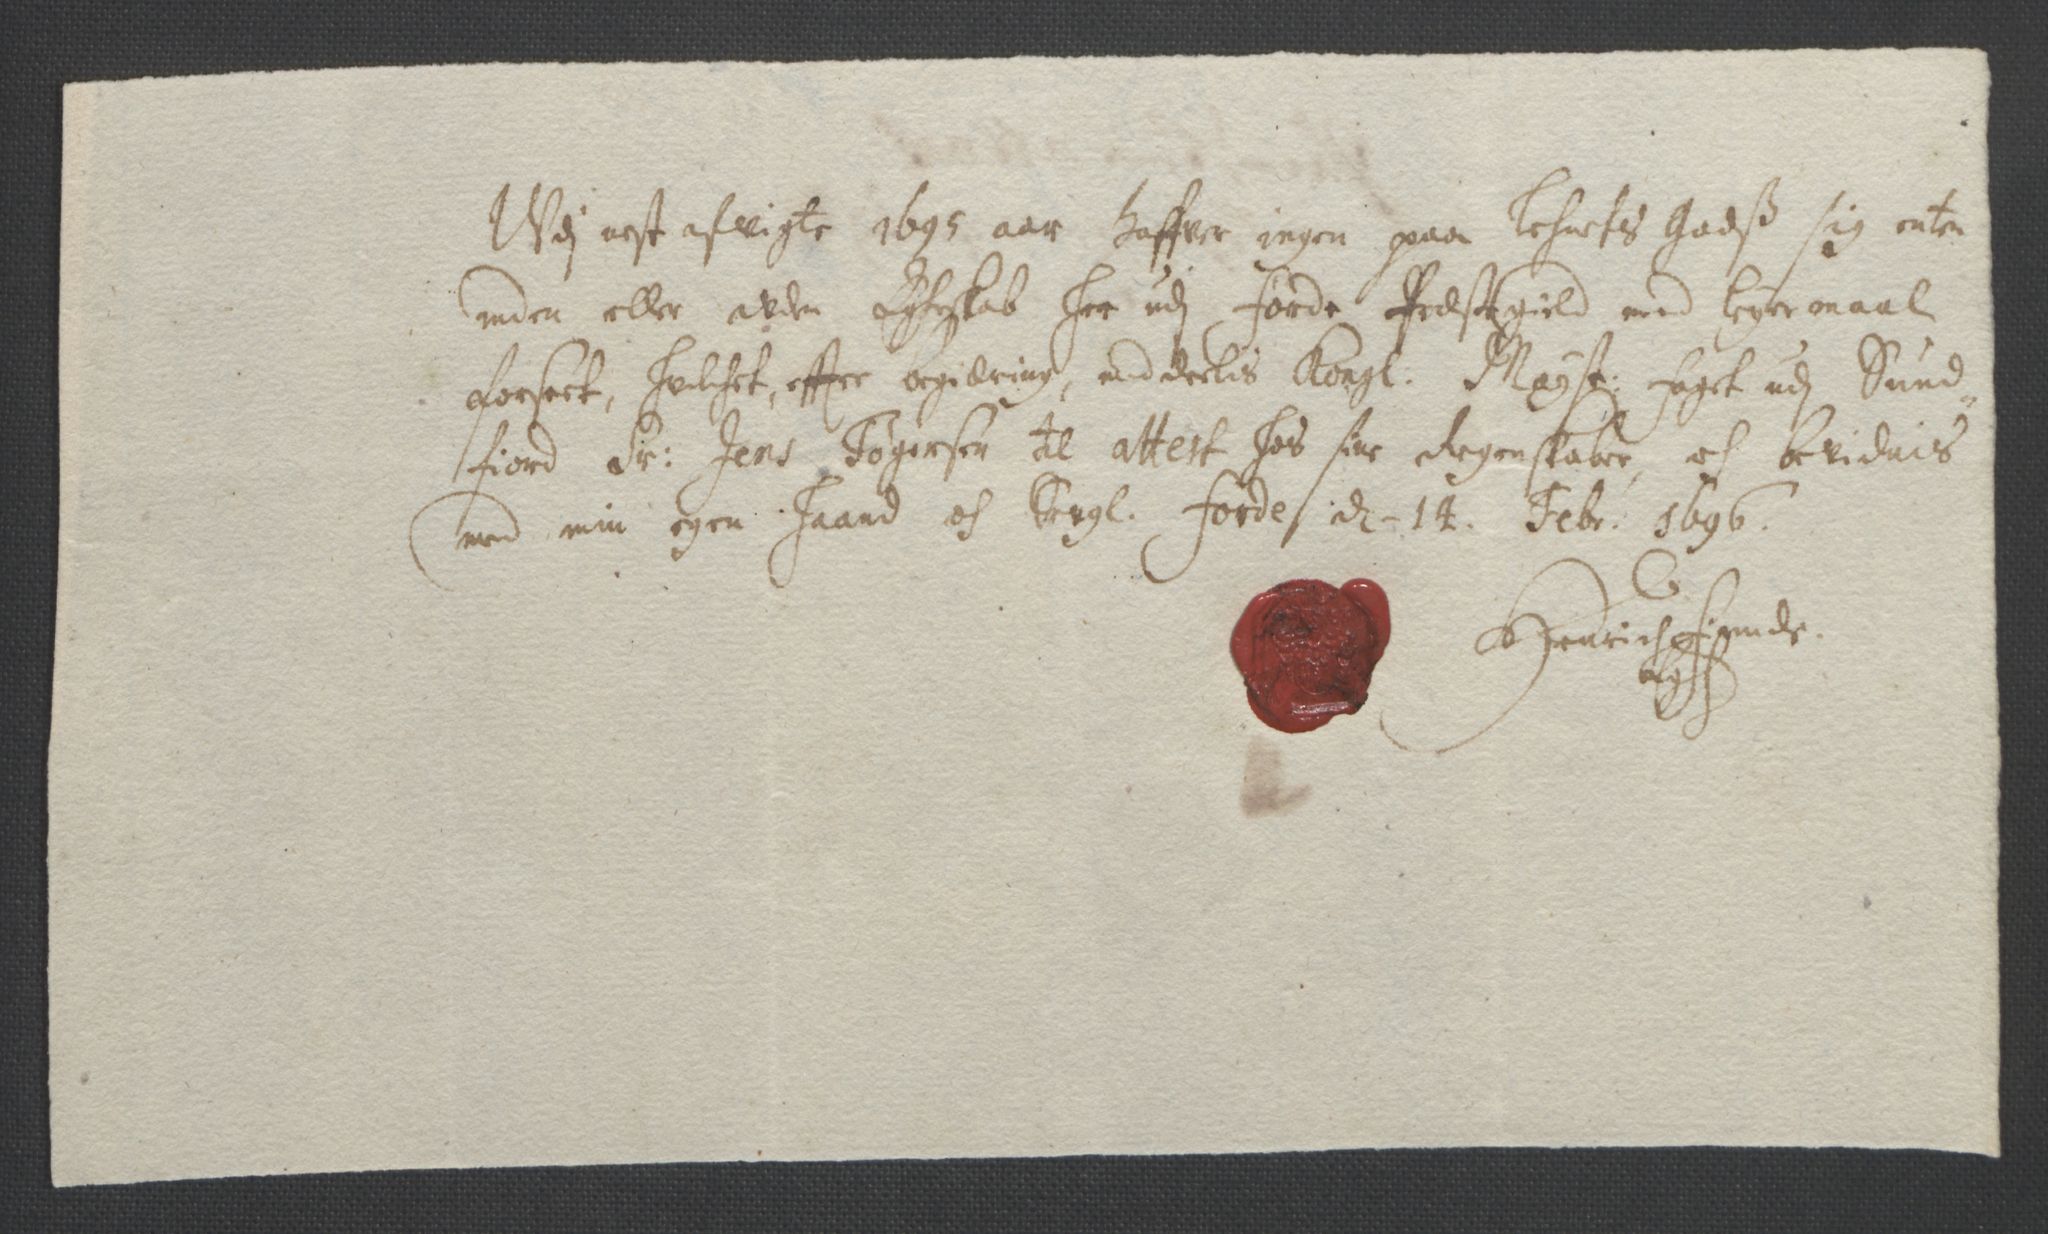 Udj nest afvigte 1695 aar haffver ingen paa Lehnets Gadß sig enten
inden eller uden Egteskab her udj Førde Prestegield med leyermaal
forseet, hvilchet, effter begiæring, meddeelis Kongl. Mayst: foget udj Sund„
fiord Sr: Jens Tøgersen til attest hos sine Regenskaber, och bevidnis
med min egen Haand och Seigl. Førde, d. 14. Febr: 1696.
Henrich Finde